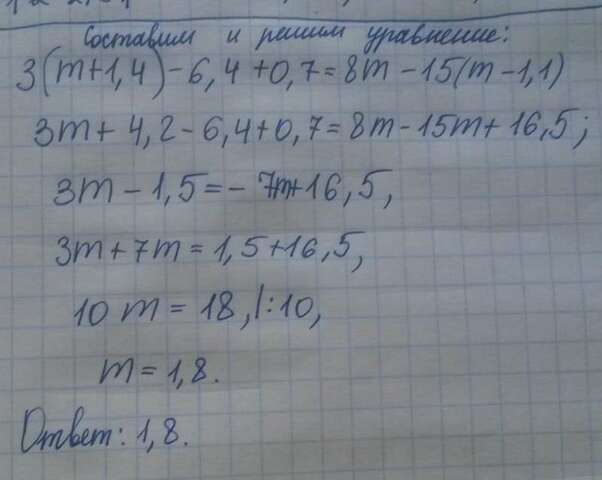 Составим и решим уравнение:
3(m+1,4)-6,4+0,7=8m-15(m-1,1)
3m+4,2-6,4+0,7=8m-15m+16,5;
3m-1,5=-7m+16,5,
3m+7m=1,5+16,5,
10m=18,/:10,
m=1,8.
Ответ: 1,8.